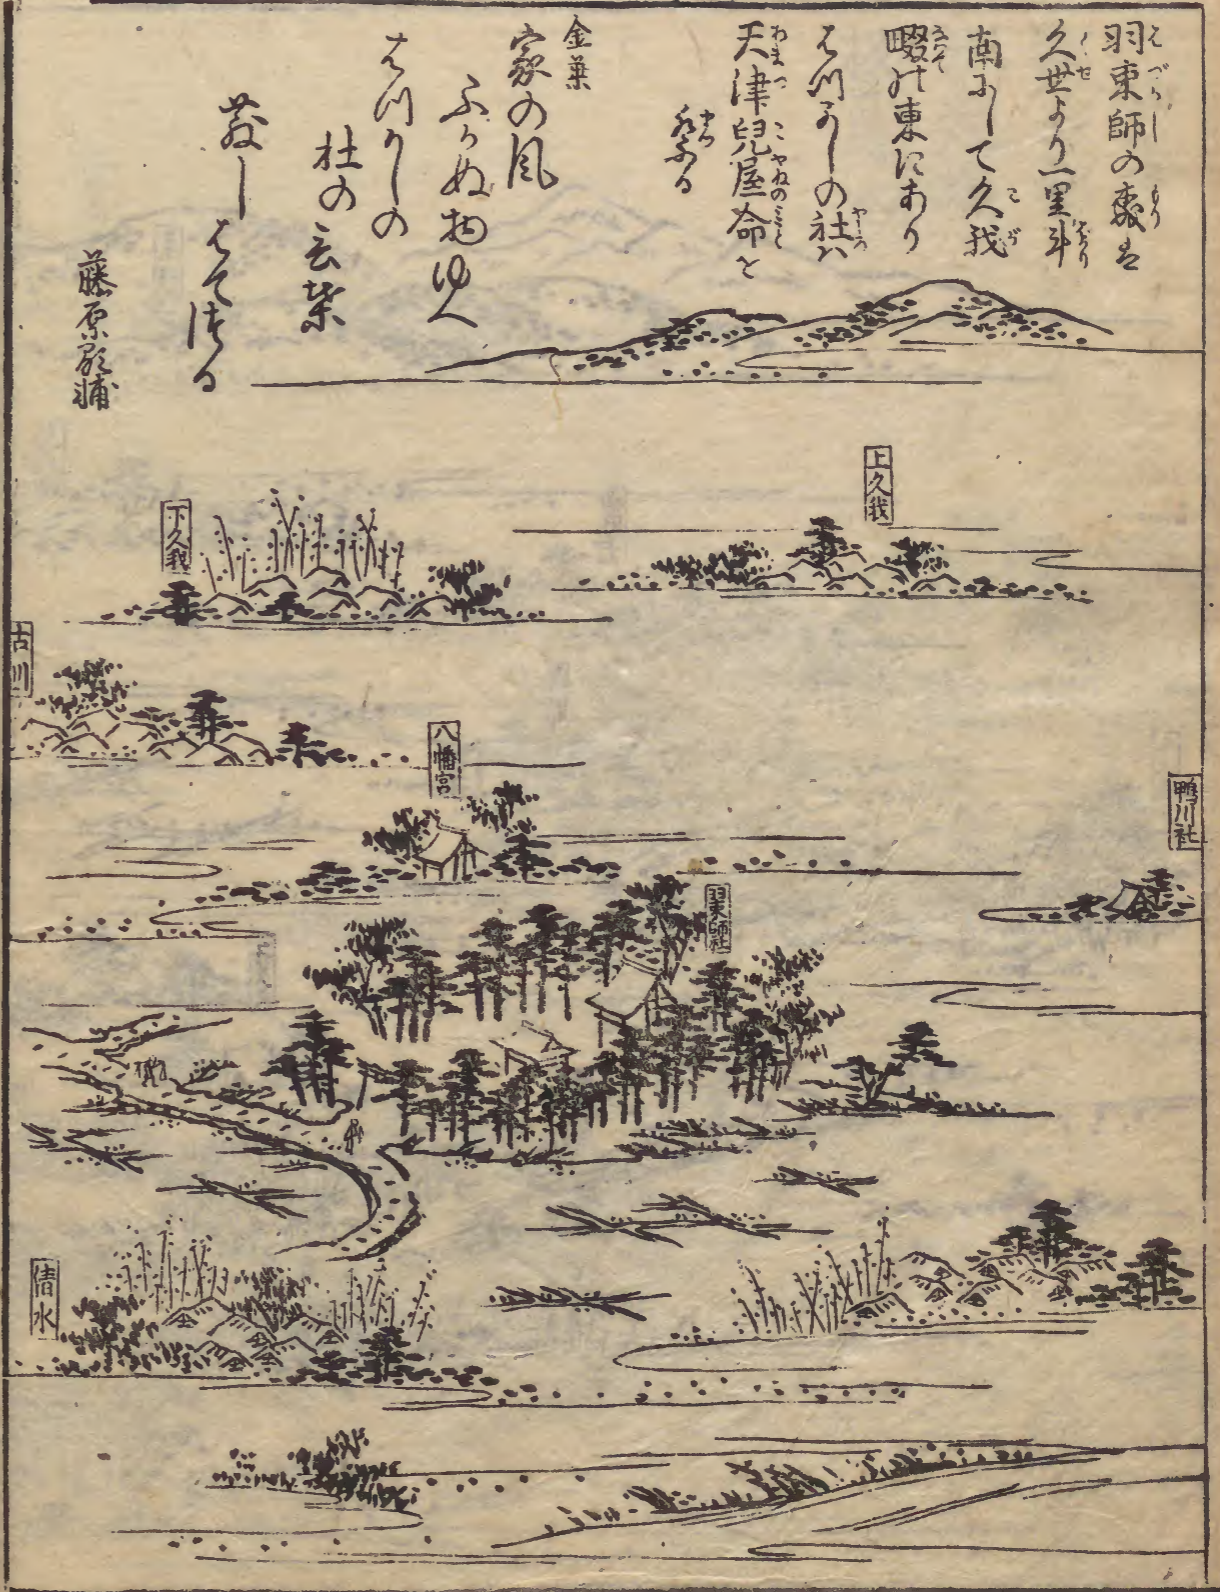 羽束師の森は
久世より一里斗
南にして久我
畷の東にあり
はつかしの社ハ
天津兒屋命を
祭る
金葉
家の風
ふかぬ物ゆへ
はつかしの
杜の言葉
散しはてぬる
藤原顕輔
上久我
下久我
古川
八幡宮
鴨川社
羽束師社
清水